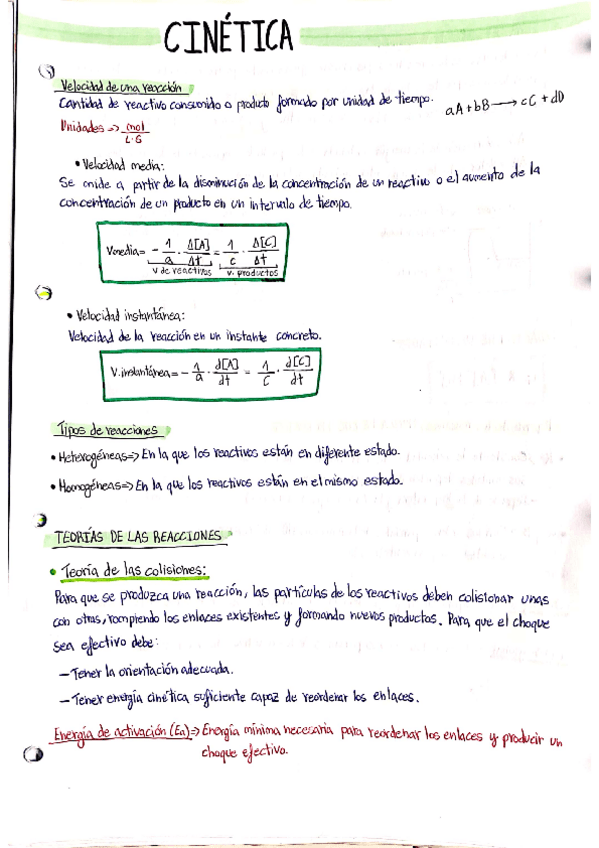 CINÉTICA
Velocidad de una reacción
Cantidad de reactivo consumido o producto formado por unidad de tiempo. aA + bB → cC + dD
Unidades => mol / L·s
• Velocidad media:
Se mide a partir de la disminución de la concentración de un reactivo o el aumento de la
concentración de un producto en un intervalo de tiempo.
Vmedia = - 1/a · Δ[A]/Δt = 1/c · Δ[C]/Δt
v de reactivos v. productos
• Velocidad instantánea:
Velocidad de la reacción en un instante concreto.
V.instantánea = - 1/a · d[A]/dt = 1/c · d[C]/dt
Tipos de reacciones
• Heterogéneas => En la que los reactivos están en diferente estado.
• Homogéneas => En la que los reactivos están en el mismo estado.
TEORÍAS DE LAS REACCIONES
• Teoría de las colisiones:
Para que se produzca una reacción, las partículas de los reactivos deben colisionar unas
con otras, rompiendo los enlaces existentes y formando nuevos productos. Para que el choque
sea efectivo debe:
– Tener la orientación adecuada.
– Tener energía cinética suficiente capaz de reordenar los enlaces.
Energía de activación (Ea) => Energía mínima necesaria para reordenar los enlaces y producir un
choque efectivo.